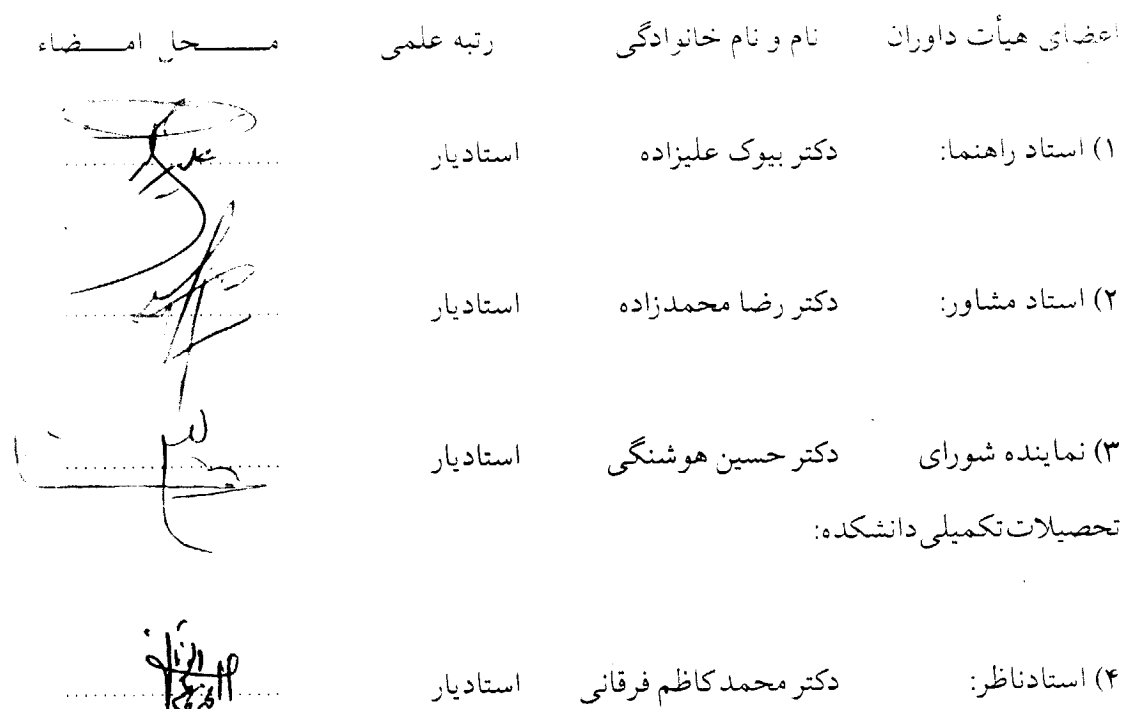 اعضای هیأت داوران نام و نام خانوادگی رتبه علمی محل امضاء
۱) استاد راهنما: دکتر بیوک علیزاده استادیار
۲) استاد مشاور: دکتر رضا محمدزاده استادیار
۳) نماینده شورای دکتر حسین هوشنگی استادیار
تحصیلات تکمیلی دانشکده:
۴) استاد ناظر: دکتر محمد کاظم فرقانی استادیار